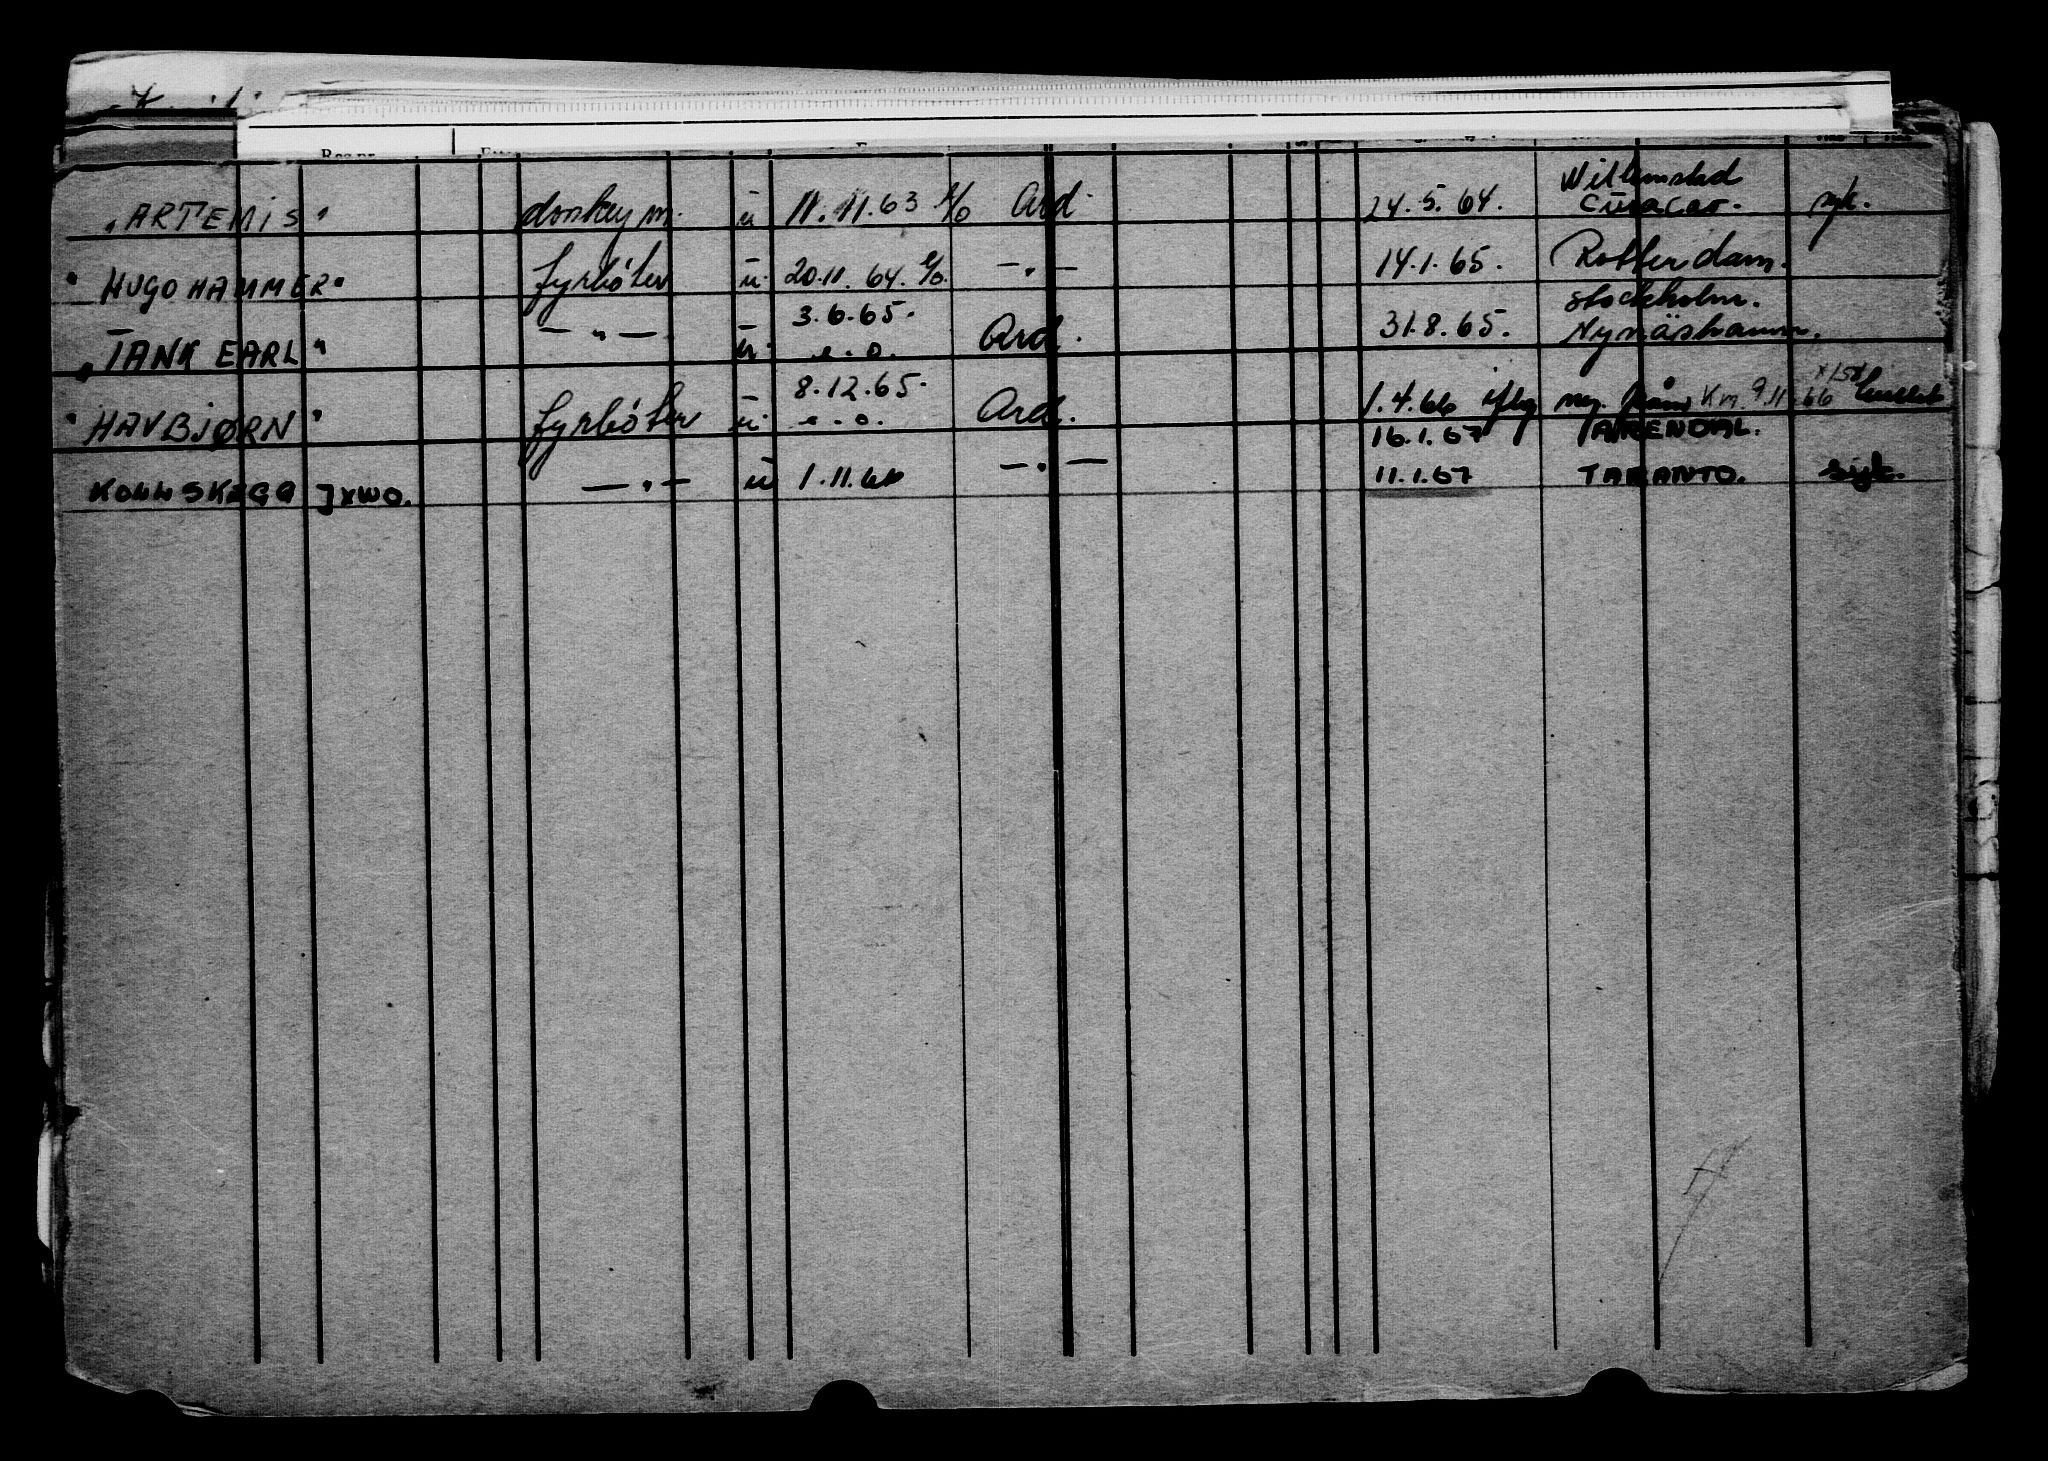 "ARTEMIS" donkeym. u 11.11.63 e/o Ard. 24.5.64. Willemstad Curacao. syk.
"HUGO HAMMER" fyrbøter u. 20.11.64. e/o. — " — 14.1.65. Rotterdam.
"TANK EARL" — " — u. 3.6.65. e.o. Ard. 31.8.65. Stockholm. Nynäshamn.
"HAVBJØRN" fyrbøter u. 8.12.65. e.o. Ard. 1.4.66 iflg. Km. 9.11.66
16.1.67 ARENDAL.
KOLLSKEGG JXWO. — " — u 1.11.66 — " — 11.1.67 TARANTO. syk.